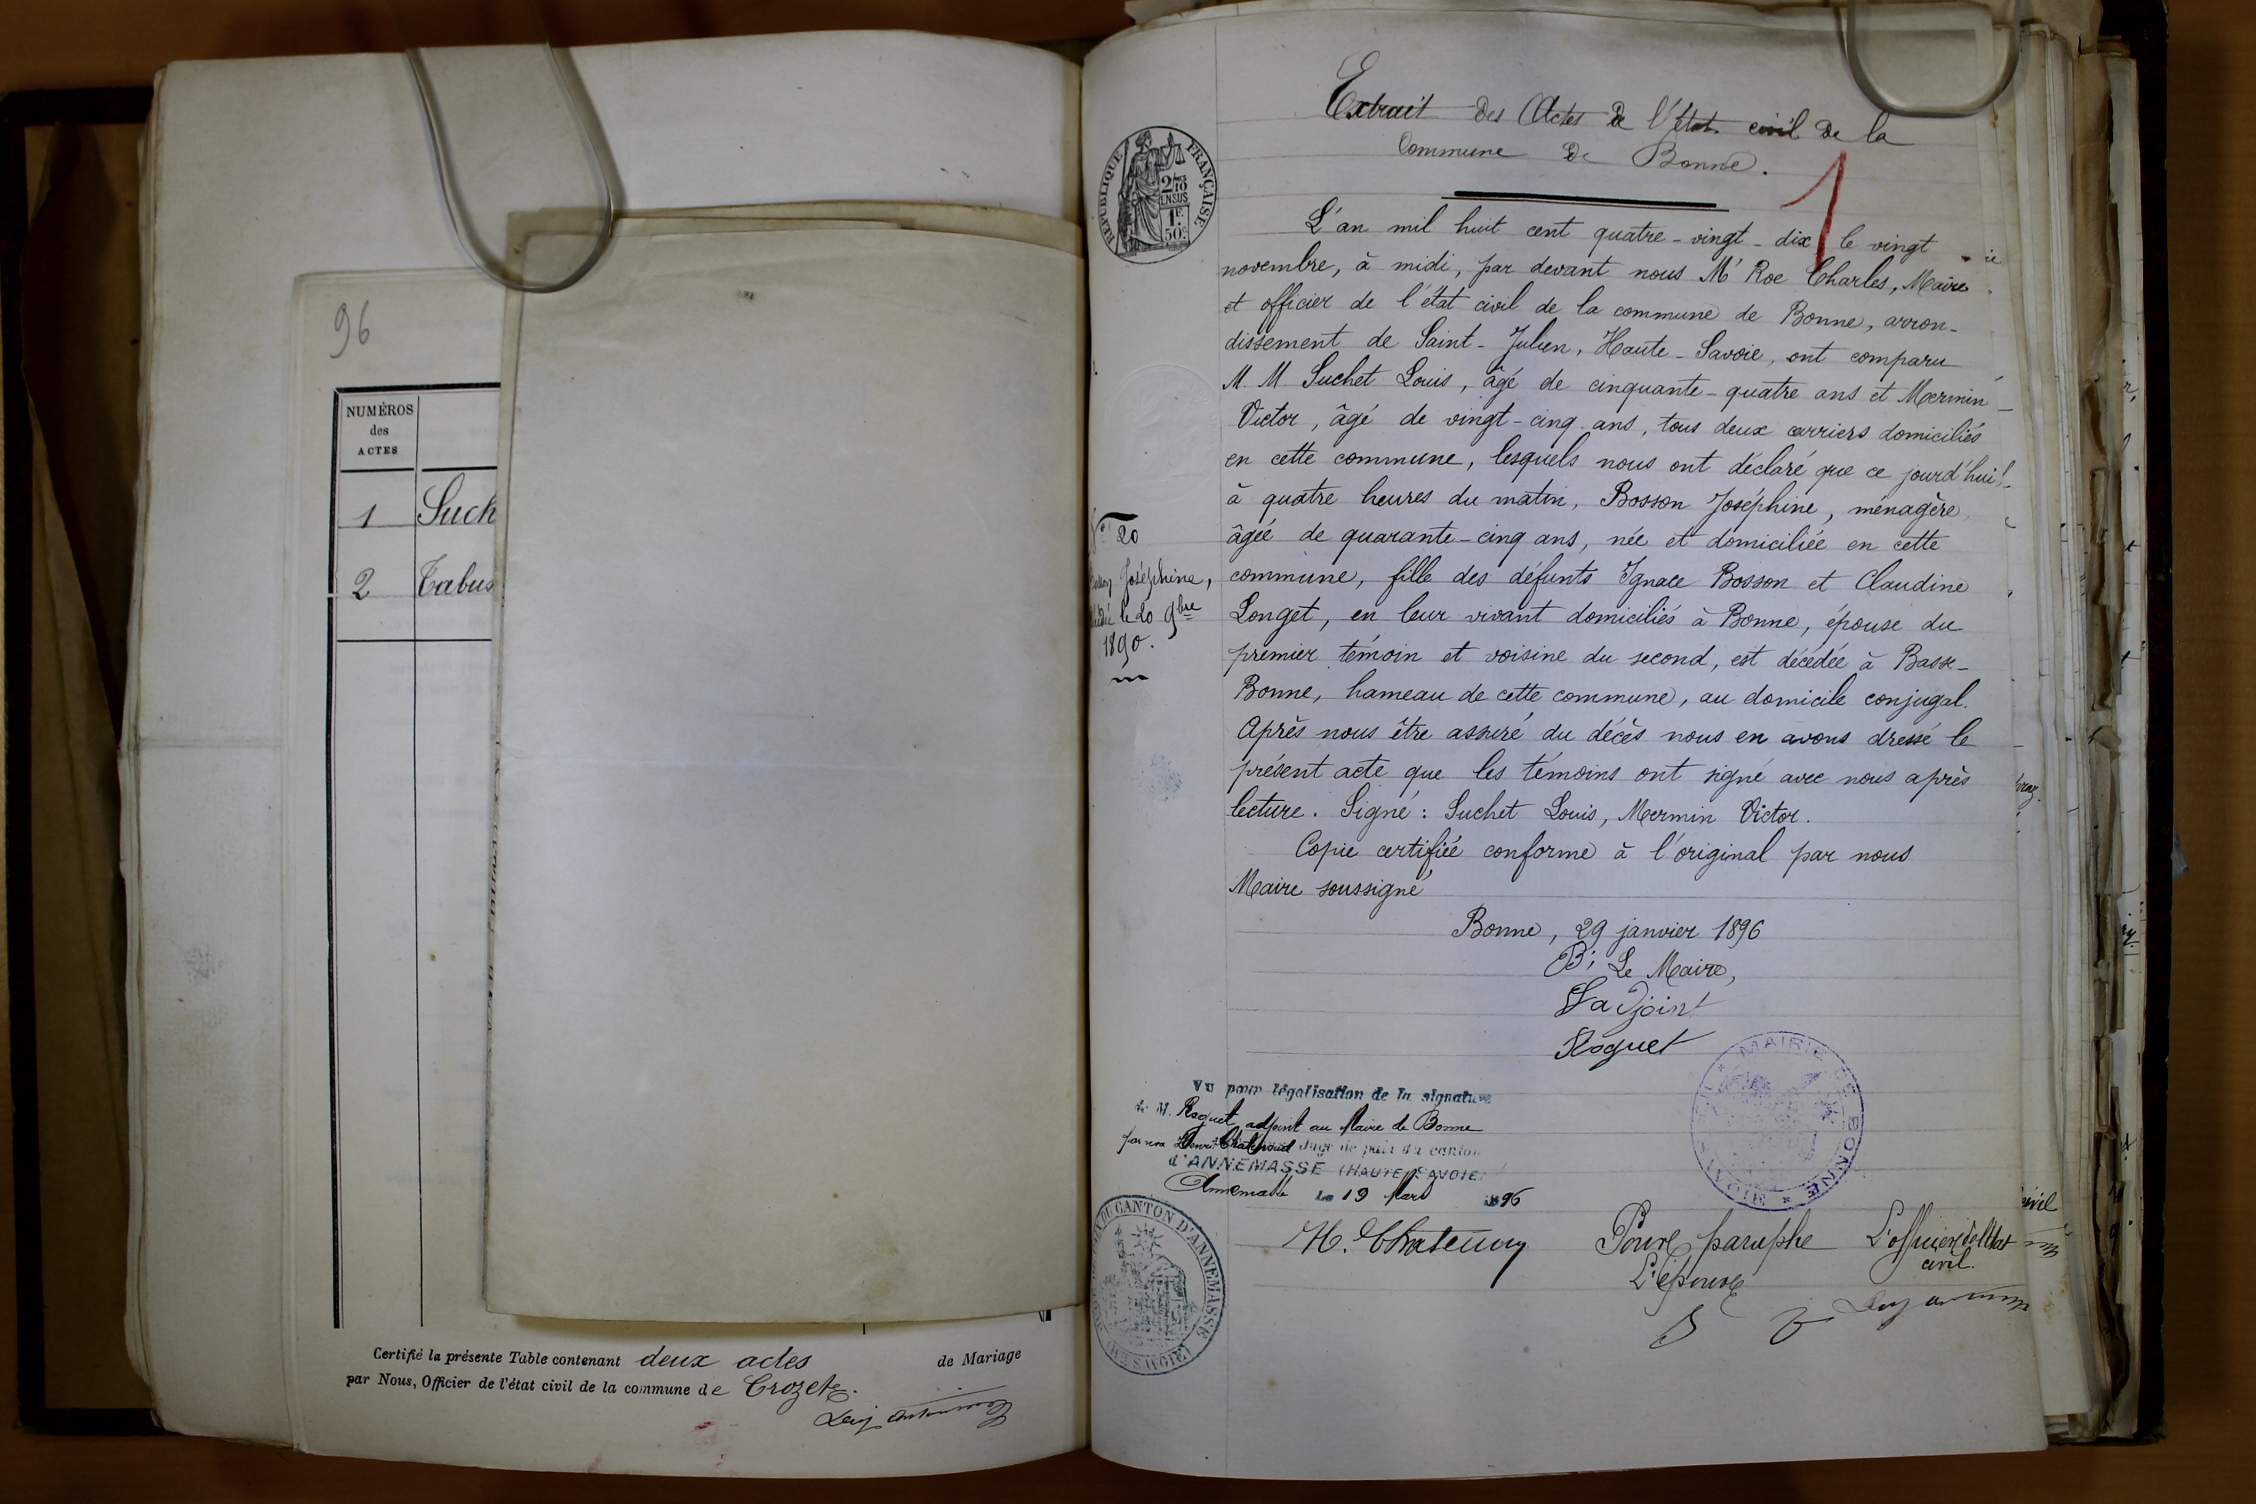 96
NUMÉROS
des
ACTES
1 Such
2 Tabus
Certifié la présente Table contenant deux actes de Mariage
par Nous, Officier de l'état civil de la commune de Crozet.
Extrait des Actes de l'état civil de la
Commune de Bonne.
1
RÉPUBLIQUE FRANÇAISE
2/10
EN SUS
1F.
50c
L'an mil huit cent quatre-vingt-dix le vingt
novembre, à midi, par devant nous Mr Roe Charles, Maire
et officier de l'état civil de la commune de Bonne, arron-
dissement de Saint-Julien, Haute-Savoie, ont comparu
M. M Suchet Louis, âgé de cinquante-quatre ans et Mermin
Victor, âgé de vingt-cinq ans, tous deux carriers domiciliés
en cette commune, lesquels nous ont déclaré que ce jourd'hui
à quatre heures du matin, Bosson Joséphine, ménagère,
âgée de quarante-cinq ans, née et domiciliée en cette
commune, fille des défunts Ignace Bosson et Claudine
Longet, en leur vivant domiciliés à Bonne, épouse du
premier témoin et voisine du second, est décédée à Basse-
Bonne, hameau de cette commune, au domicile conjugal.
Après nous être assuré du décès nous en avons dressé le
présent acte que les témoins ont signé avec nous après
lecture. Signé : Suchet Louis, Mermin Victor.
Copie certifiée conforme à l'original par nous
Maire soussigné
No 20
Joséphine,
le 20 9bre
1890.
Bonne, 29 janvier 1896
Le Maire,
L'adjoint
Roguet
MAIRIE DE BONNE
Vu pour légalisation de la signature
de M. Roguet adjoint au Maire de Bonne
par nous Henri Juge de paix du canton
d'ANNEMASSE (HAUTE-SAVOIE)
Annemasse Le 19 Mars 1896
DU CANTON D'ANNEMASSE
(Hte SAVOIE)
Pour paraphe
L'épouse
L'officier de l'état
civil.
civil